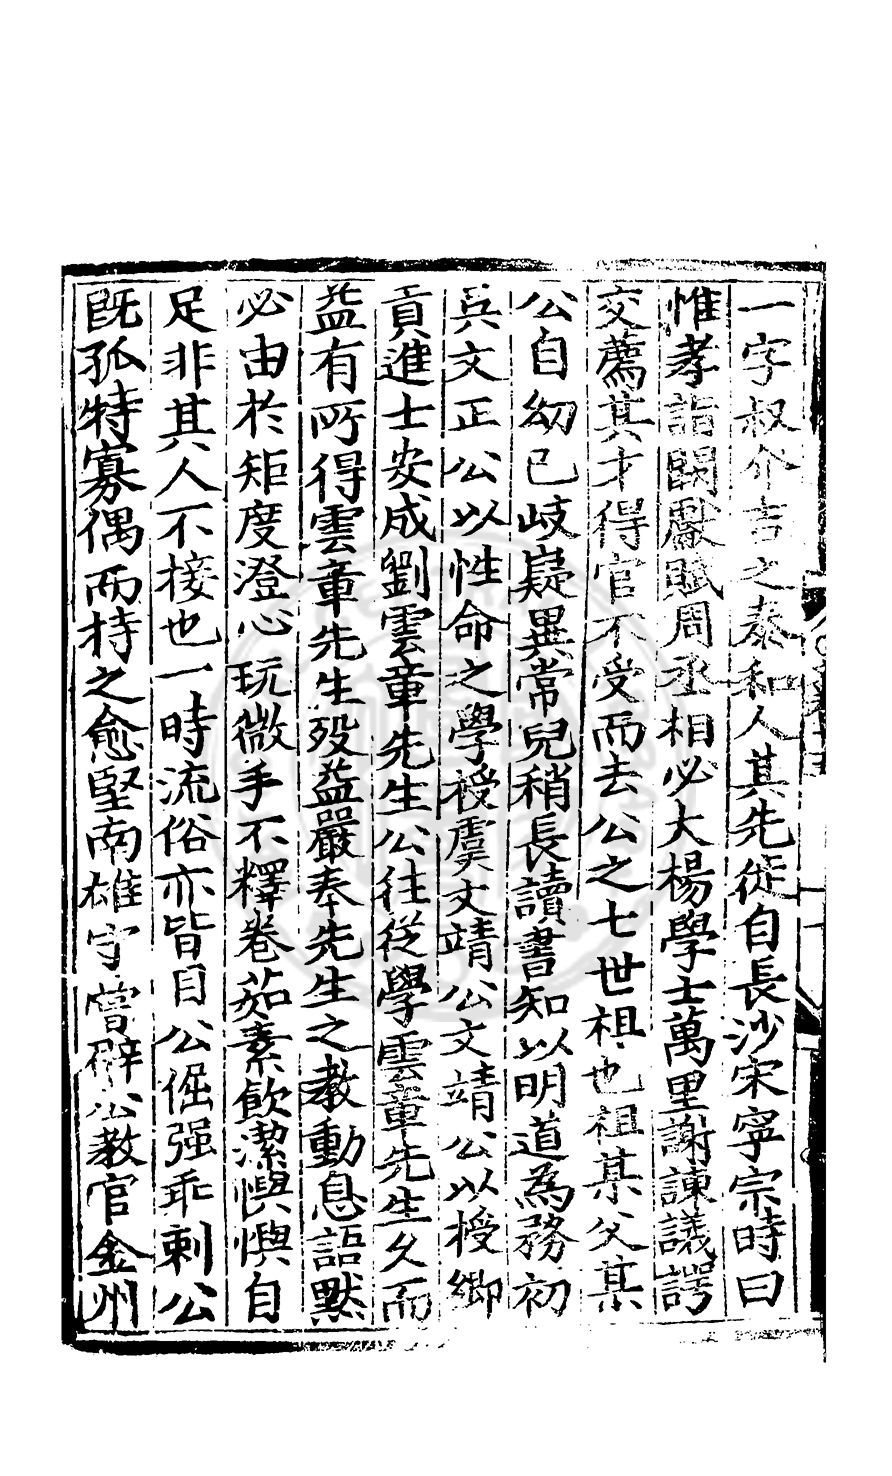 一字叔介吉之泰和人其先徙自長沙宋寧宗時曰
惟孝詣闕獻賦周丞相必大楊學士萬里謝諫議諤
交薦其才得官不受而去公之七世祖也祖某父某
公自幼已岐嶷異常兒稍長讀書知以明道為務初
吳文正公以性命之學授虞文靖公文靖公以授鄉
貢進士安成劉雲章先生公往從學雲章先生久而
益有所得雲章先生歿益嚴奉先生之教動息語默
必由於矩度澄心玩微手不釋卷茹素飲潔懙懙自
足非其人不接也一時流俗亦皆目公倔强乖剌公
既孤特寡偶而持之愈堅南雄守嘗辟公教官金州